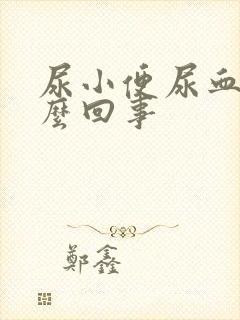 尿小便尿血
麼回事
鄭鑫